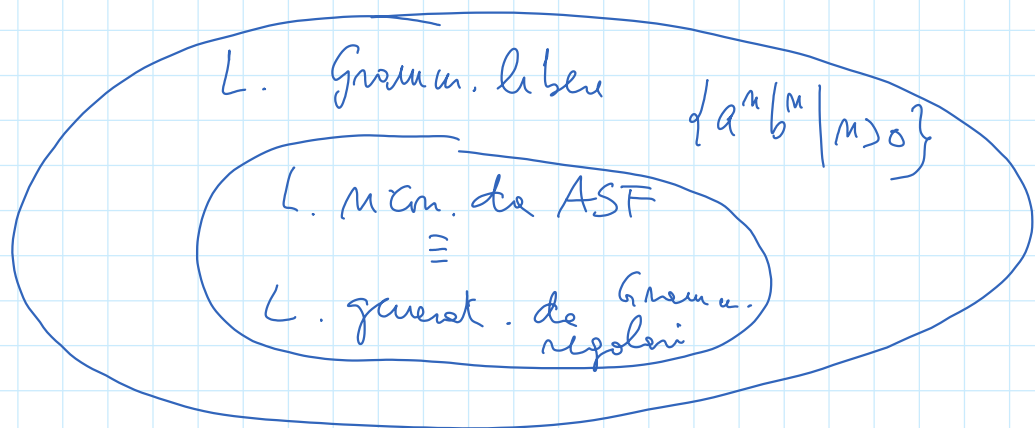 L. Gramm. libere
{aⁿbⁿ | n>0}
L. ricon. da ASF
≡
L. generat. da Gramm.
regolari